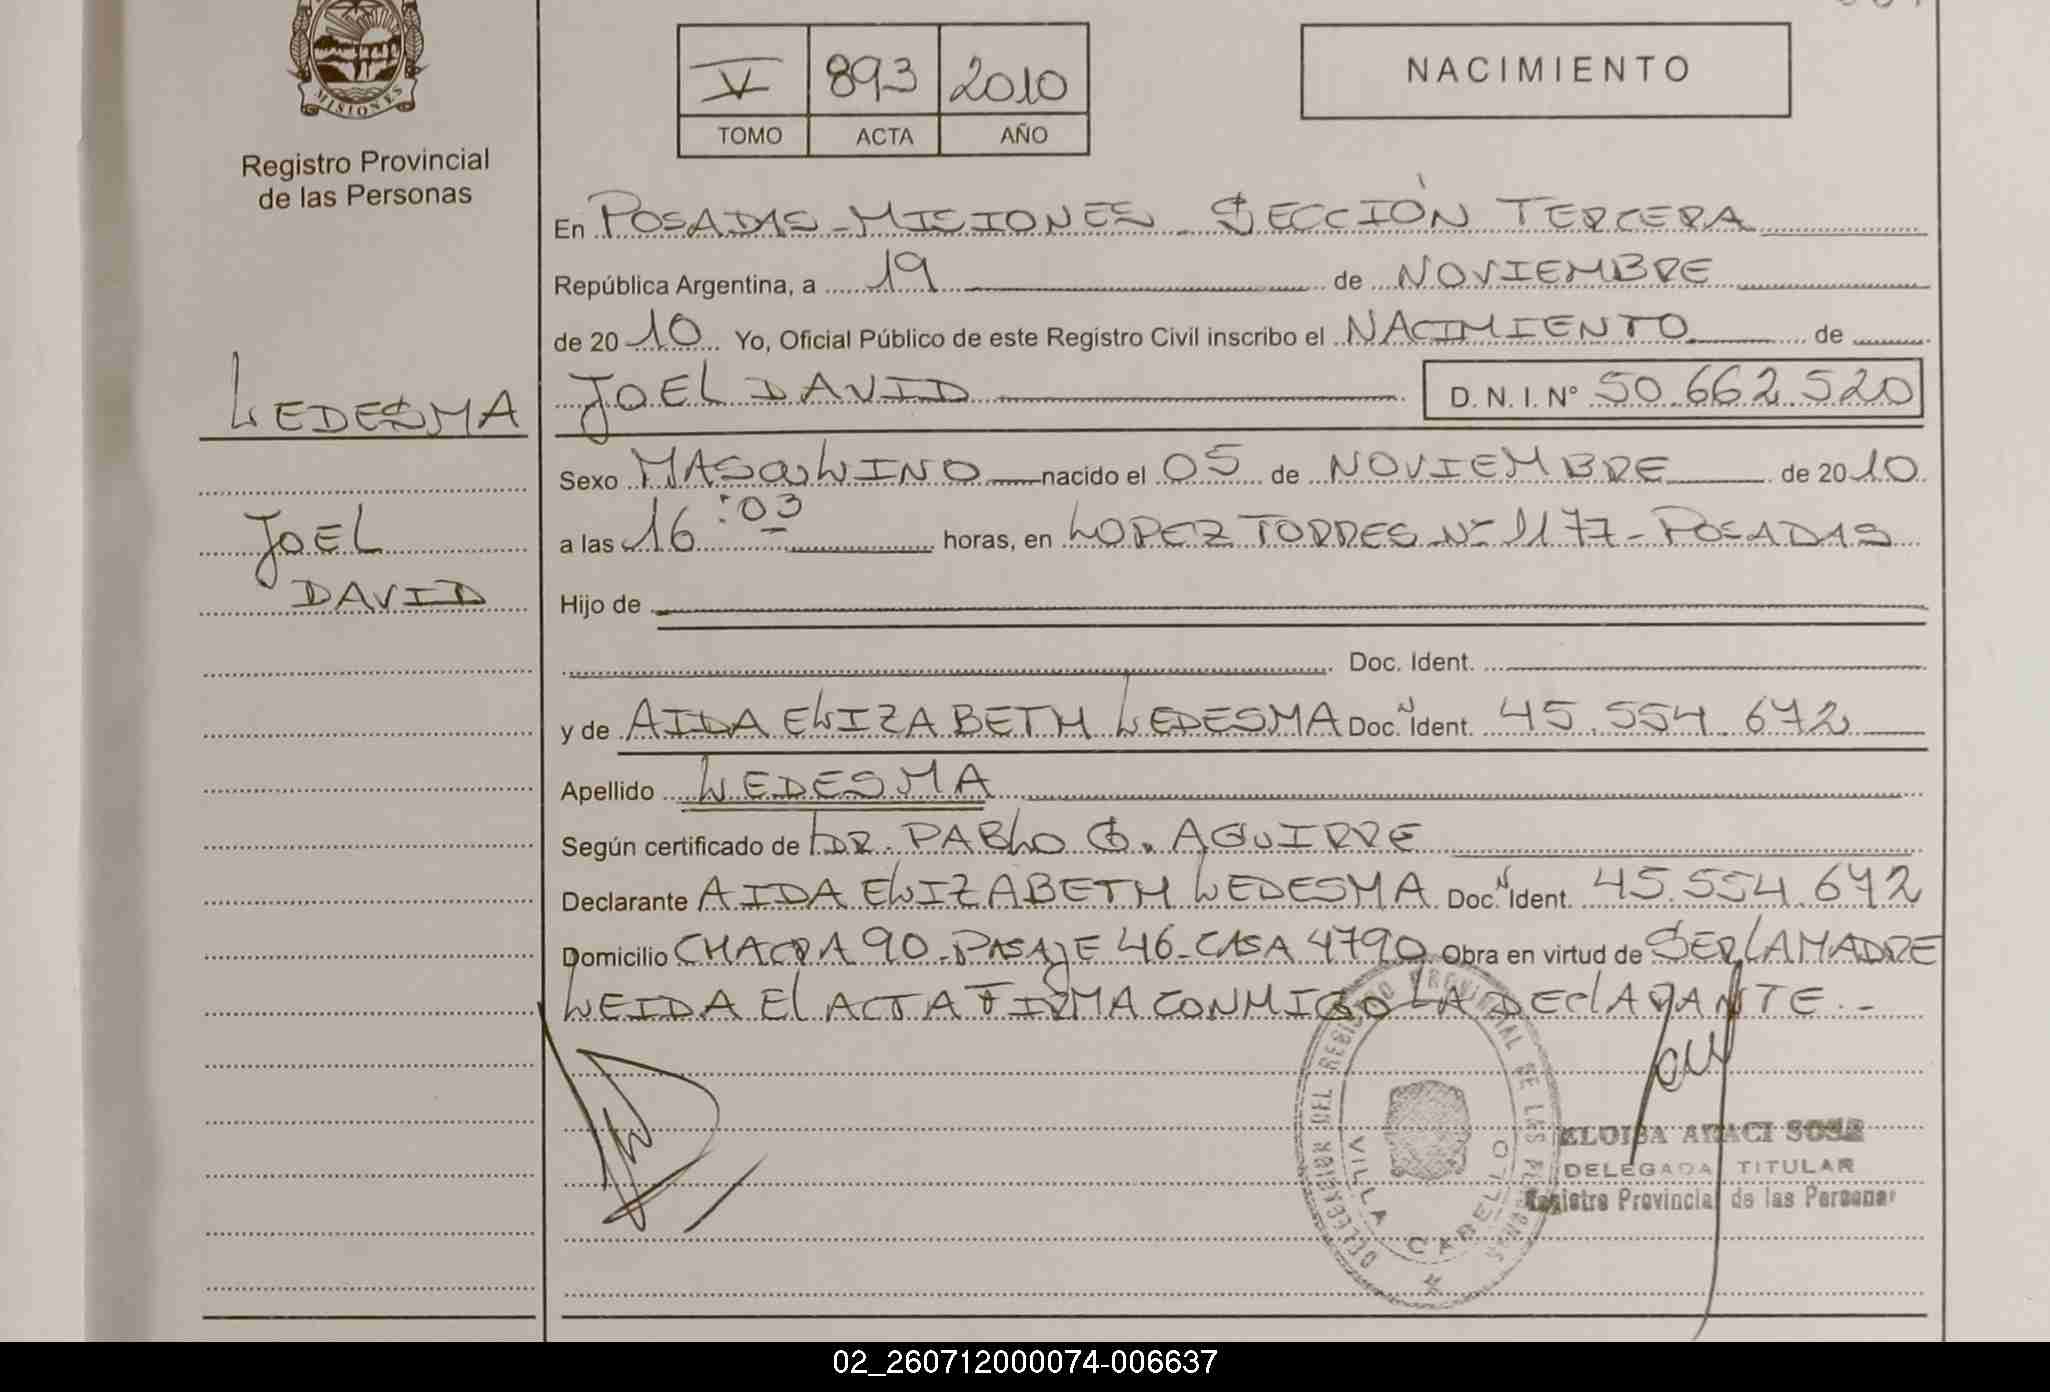 MISIONES
Registro Provincial
de las Personas
V 893 2010
TOMO ACTA AÑO
NACIMIENTO
En POSADAS-MISIONES - SECCIÓN TERCERA
República Argentina, a 19 de NOVIEMBRE
de 2010 Yo, Oficial Público de este Registro Civil inscribo el NACIMIENTO de
LEDESMA
JOEL DAVID D. N. I. N° 50.662.520
Sexo MASCULINO nacido el 05 de NOVIEMBRE de 2010
JOEL
DAVID
a las 16:03 horas, en LOPEZ TORRES Nº 1177 - POSADAS
Hijo de
Doc. Ident.
y de AIDA ELIZABETH LEDESMA Doc. N Ident. 45.554.672
Apellido LEDESMA
Según certificado de DR. PABLO G. AGUIRRE
Declarante AIDA ELIZABETH LEDESMA Doc. N Ident. 45.554.672
Domicilio CHACRA 90 - PASAJE 46 - CASA 4790 Obra en virtud de SER LA MADRE
LEIDA El ACTA FIRMA CONMIGO LA DEClARANTE.-
DELEGACION DEL REGISTRO PROVINCIAL DE LAS PERSONAS
VILLA CABELLO
ELOISA ARACI SOSA
DELEGADA TITULAR
Registro Provincial de las Personas
02_260712000074-006637